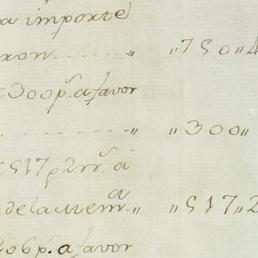 a importe
ron ........ „ „750„4
300p.s a favor
........ „ „300„
517p2rr.s á
de la Mem.a „ „517„2
206p.s a favor